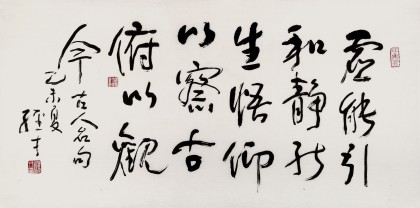 虚能引
和静能
生悟仰
以察古
俯以觀
今古人名句
乙未夏